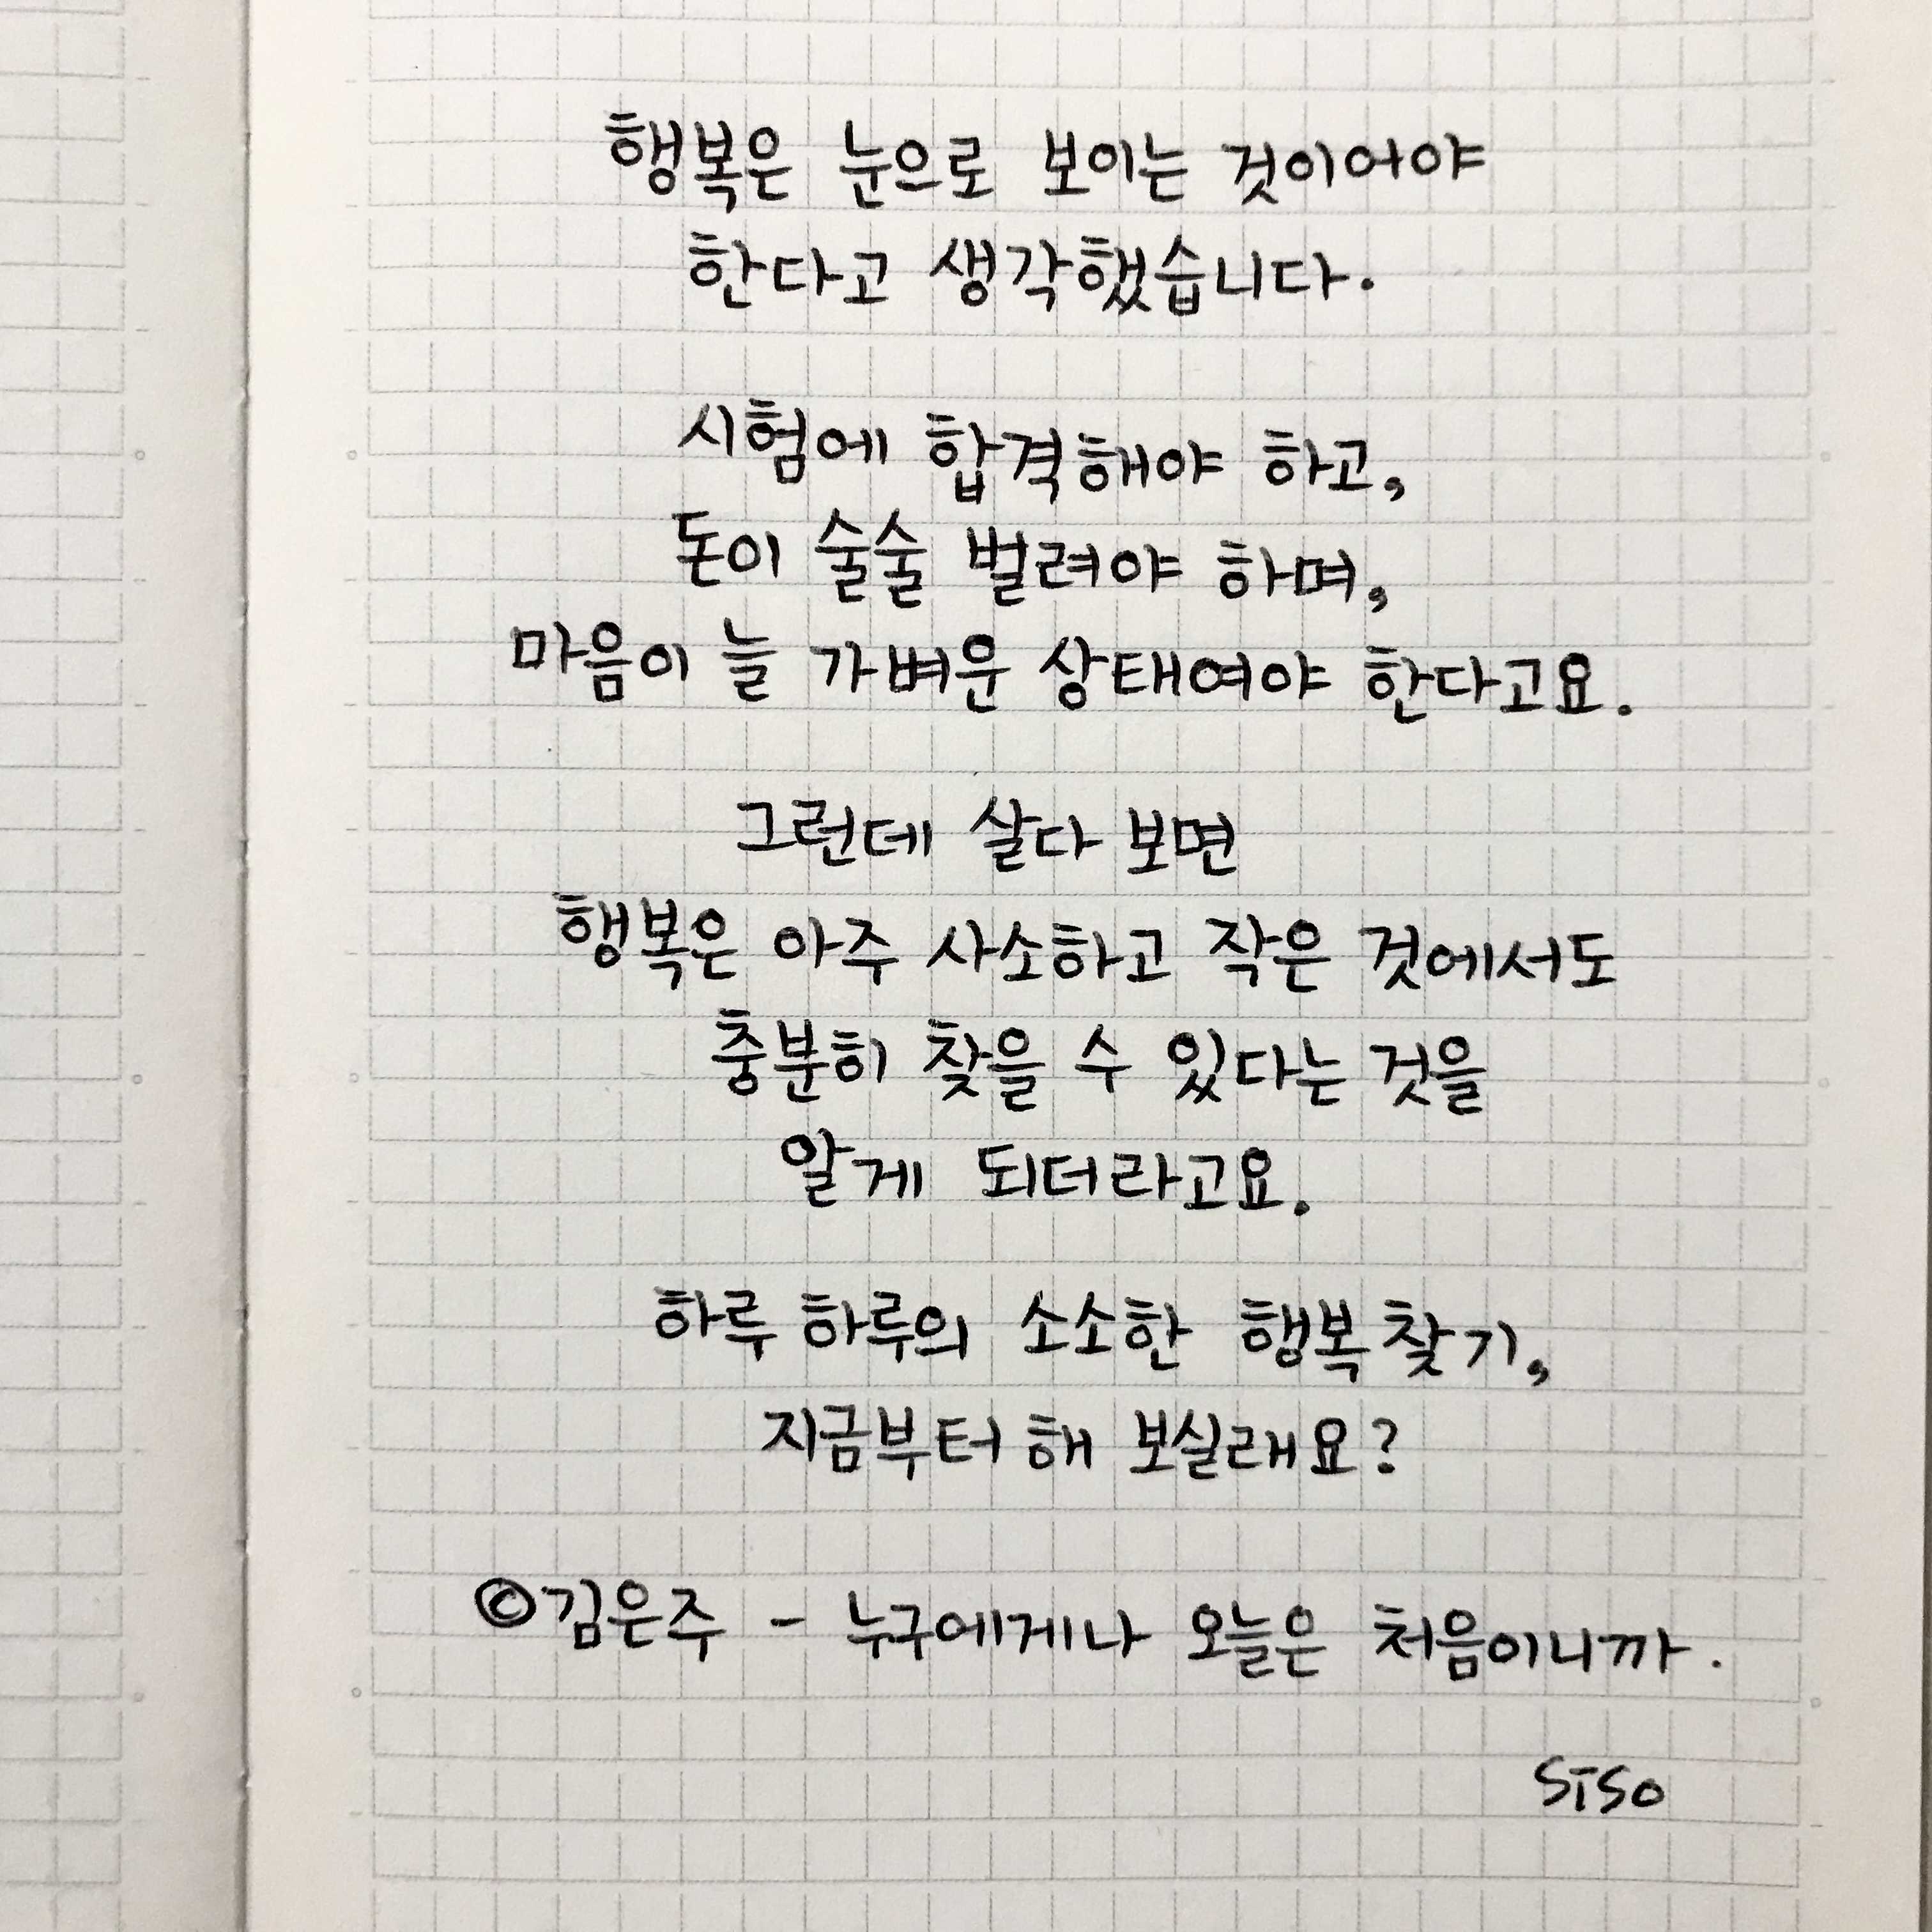 행복은 눈으로 보이는 것이어야
한다고 생각했습니다.
시험에 합격해야 하고,
돈이 술술 벌려야 하며,
마음이 늘 가벼운 상태여야 한다고요.
그런데 살다 보면
행복은 아주 사소하고 작은 것에서도
충분히 찾을 수 있다는 것을
알게 되더라고요.
하루 하루의 소소한 행복 찾기,
지금부터 해 보실래요?
©김은주 - 누구에게나 오늘은 처음이니까.
SISO